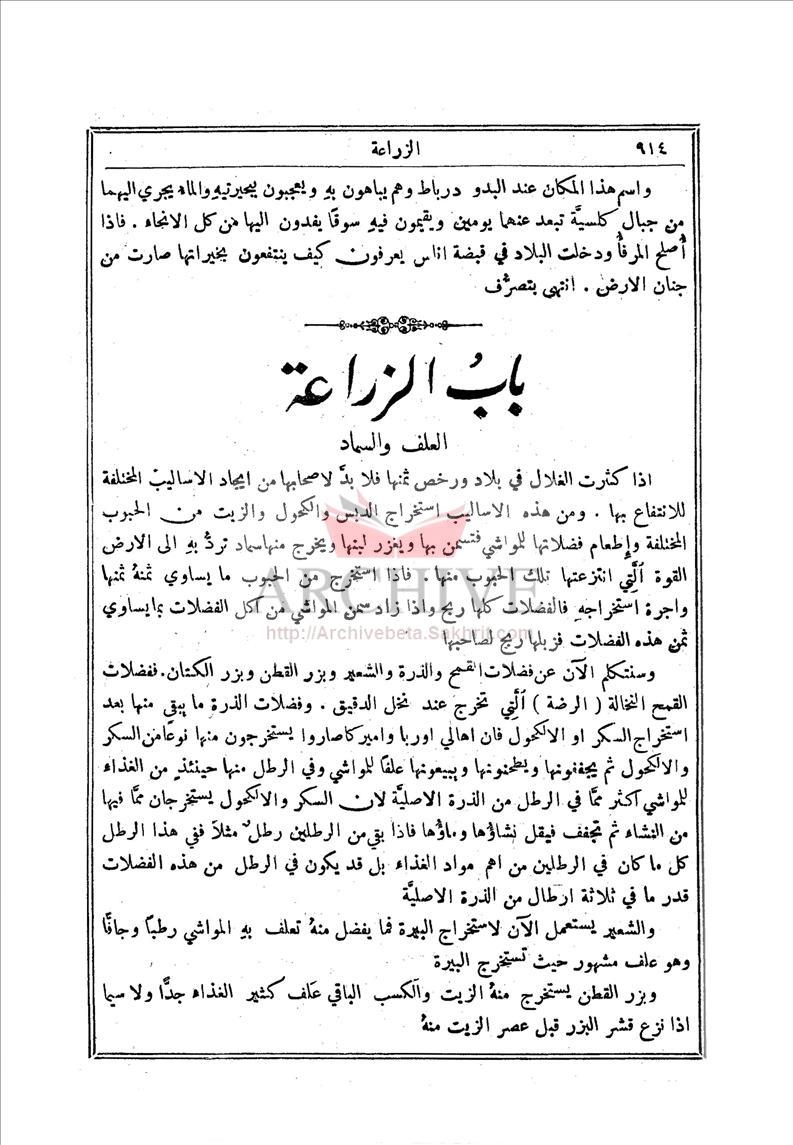 ٩١٤
الزراعة
واسم هذا المكان عند البدو درباط وهم يباهون بهِ ويعجبون ببحيرتيهِ والماء يجري اليهما
من جبال كلسيَّة تبعد عنهما يومين ويقيمون فيهِ سوقًا يفدون اليها من كل الانحاء . فاذا
أُصلح المرفأُ ودخلت البلاد في قبضة اناس يعرفون كيف ينتفعون بخيراتها صارت من
جنان الارض . انتهى بتصرُّف
بابُ الزراعة
العلف والسماد
اذا كثرت الغلال في بلاد ورخص ثمنها فلا بدَّ لاصحابها من ايجاد الاساليب المختلفة
للانتفاع بها . ومن هذه الاساليب استخراج الدبس والكحول والزيت من الحبوب
المختلفة وإطعام فضلاتها للمواشي فتسمن بها ويغزر لبنها ويخرج منها سماد تردُّ بهِ الى الارض
القوة الَّتي انتزعتها تلك الحبوب منها . فاذا استخرج من الحبوب ما يساوي ثمنهُ ثمنها
واجرة استخراجهِ فالفضلات كلها ربح واذا زاد سمن المواشي من اكل الفضلات بما يساوي
ثمن هذه الفضلات فزبلها ربح لصاحبها
وسنتكلم الآن عن فضلات القمح والذرة والشعير وبزر القطن وبزر الكتان. ففضلات
القمح النخالة ( الرضة ) الَّتي تخرج عند نخل الدقيق . وفضلات الذرة ما يبقى منها بعد
استخراج السكر او الالكحول فان اهالي اوربا واميركا صاروا يستخرجون منها نوعًا من السكر
والالكحول ثم يجففونها ويطحنونها ويبيعونها علفًا للمواشي وفي الرطل منها حينئذٍ من الغذاء
للمواشي اكثر ممَّا في الرطل من الذرة الاصليَّة لان السكر والالكحول يستخرجان ممَّا فيها
من النشاء ثم تجفف فيقل نشاؤها وماؤها فاذا بقي من الرطلين رطلٌ مثلاً ففي هذا الرطل
كل ما كان في الرطلين من اهم مواد الغذاء بل قد يكون في الرطل من هذه الفضلات
قدر ما في ثلاثة ارطال من الذرة الاصليَّة
والشعير يستعمل الآن لاستخراج البيرة فما يفضل منهُ تعلف بهِ المواشي رطبًا وجافًّا
وهو علف مشهور حيث تستخرج البيرة
وبزر القطن يستخرج منهُ الزيت والكسب الباقي علف كثير الغذاء جدًّا ولا سيما
اذا نزع قشر البزر قبل عصر الزيت منهُ
ARCHIVE
http://Archivebeta.Sakhrit.com